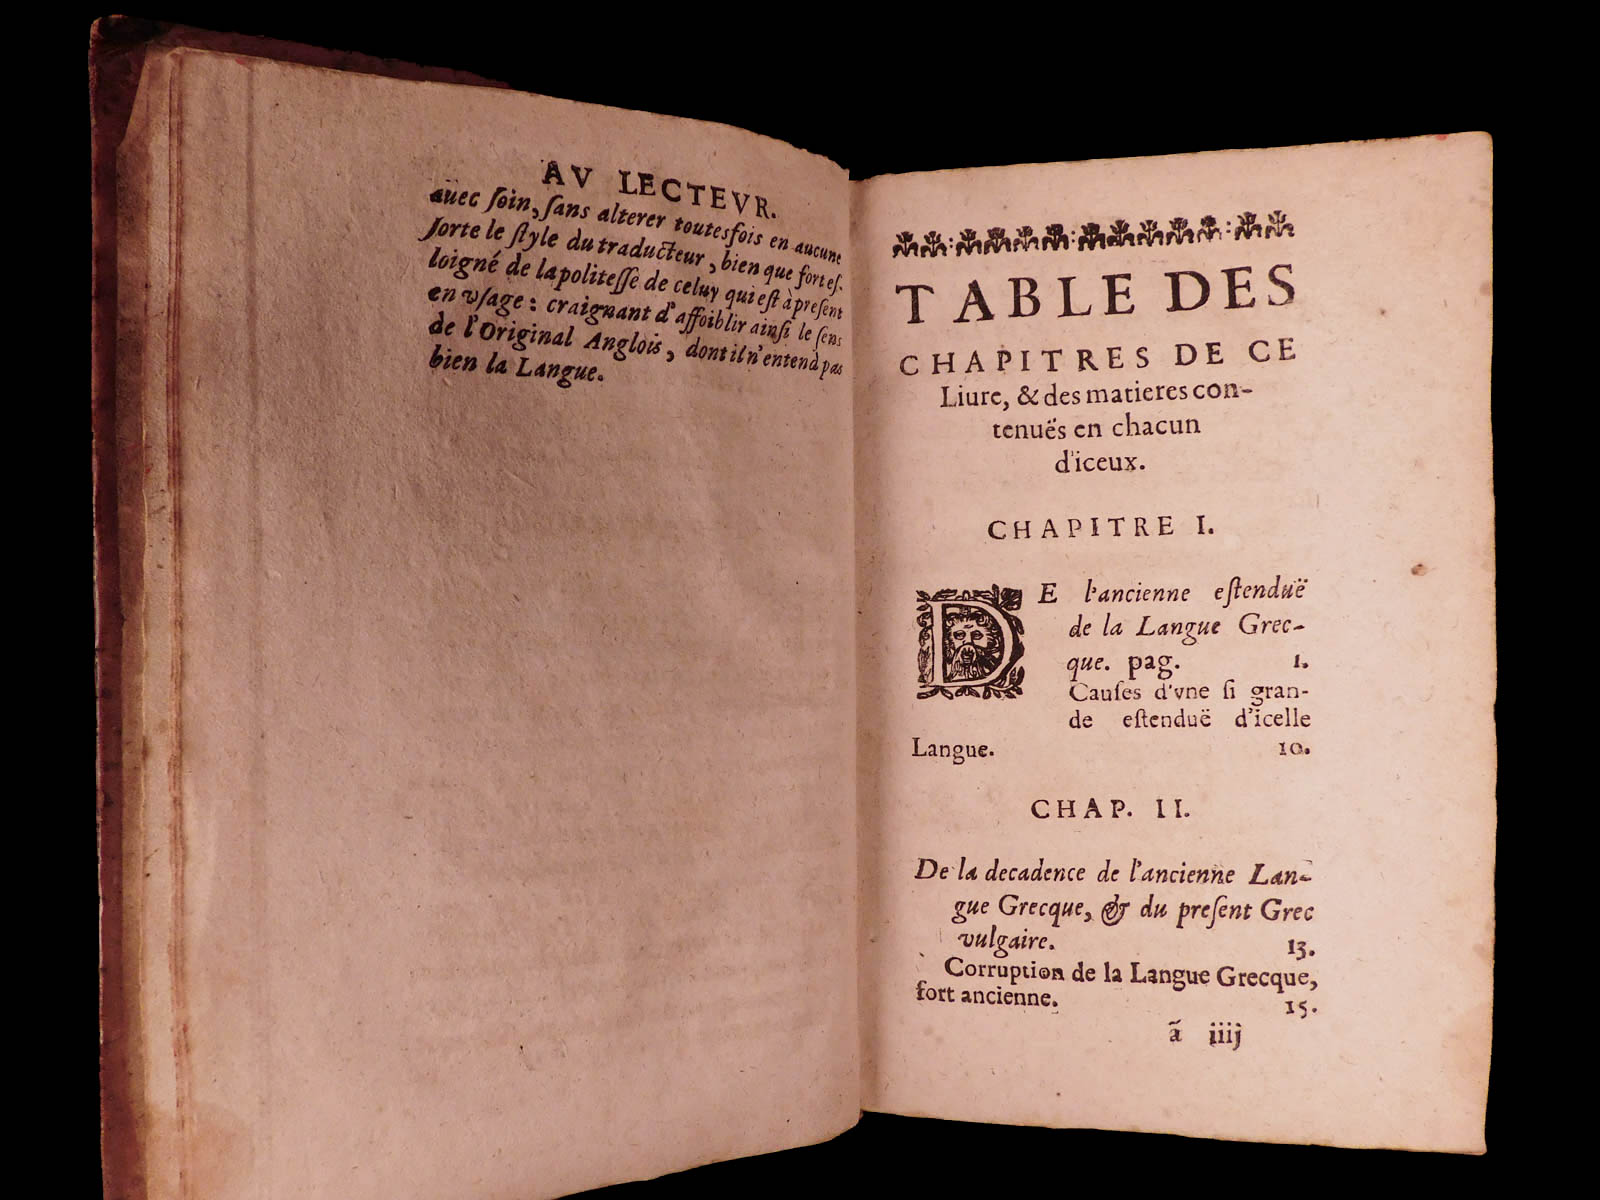 AV LECTEVR.
auec ſoin, ſans alterer toutesfois en aucune
ſorte le ſtyle du traducteur, bien que fort eſ-
loigné de la politeſſe de celuy qui eſt à preſent
en vſage: craignant d'affoiblir ainſi le ſens
de l'Original Anglois, dont il n'entend pas
bien la Langue.
TABLE DES
CHAPITRES DE CE
Liure, & des matieres con-
tenuës en chacun
d'iceux.
CHAPITRE I.
DE l'ancienne eſtenduë
de la Langue Grec-
que. pag. 1.
Cauſes d'vne ſi gran-
de eſtenduë d'icelle
Langue. 10.
CHAP. II.
De la decadence de l'ancienne Lan-
gue Grecque, & du preſent Grec
vulgaire. 13.
Corruption de la Langue Grecque,
fort ancienne. 15.
ã iiij